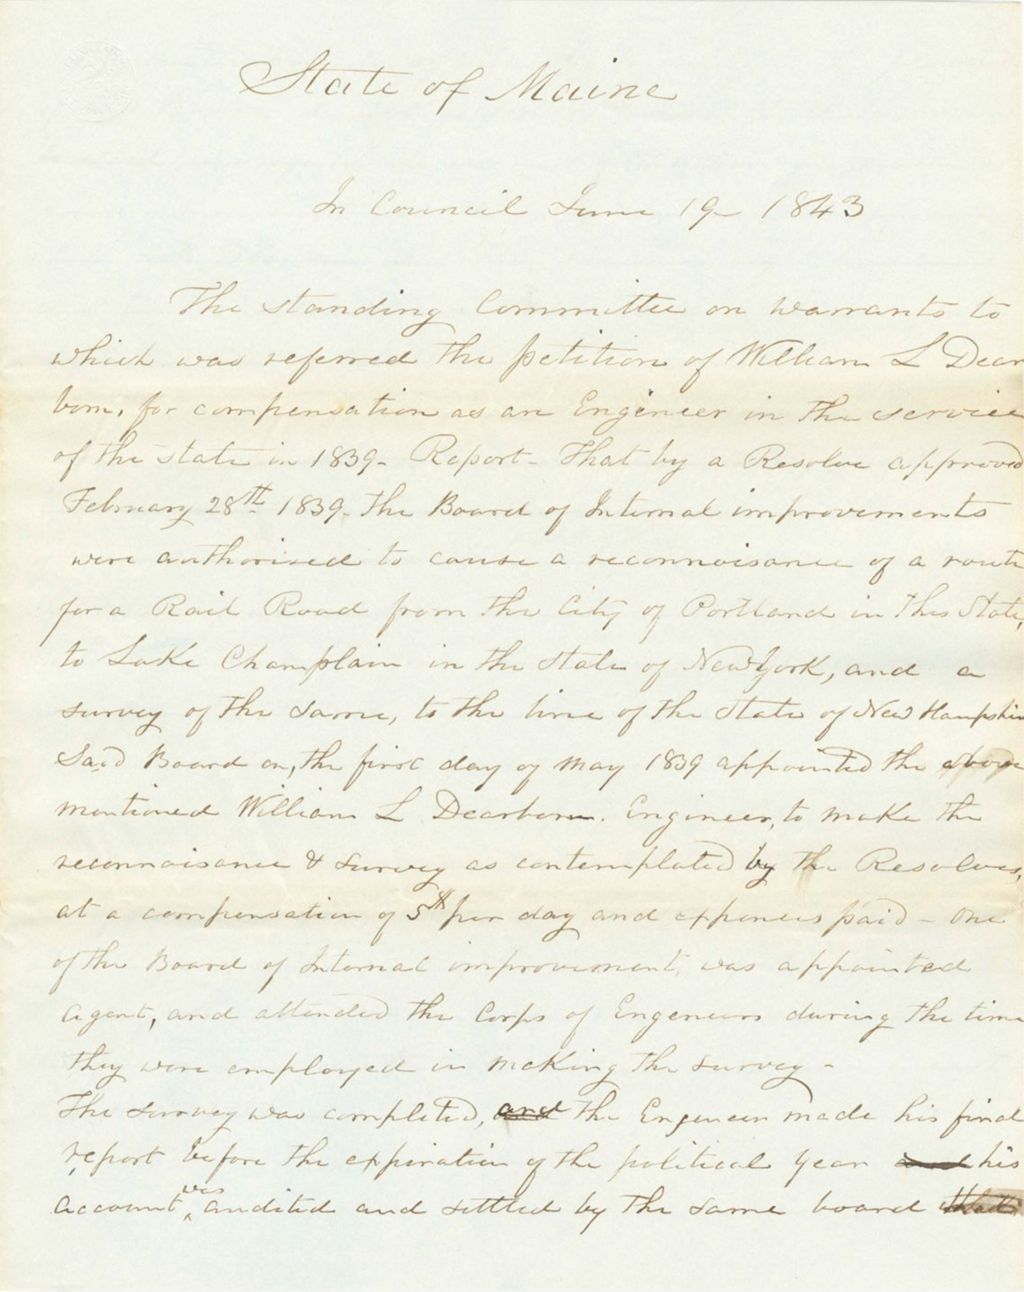 State of Maine
In Council June 19 - 1843
The standing Committee on Warrants to
which was referred the petition of William L Dear
born, for compensation as an Engineer in the service
of the state in 1839 - Report - That by a Resolve approved
February 28th 1839 - The Board of Internal improvements
were authorised to cause a reconnoisance of a route
for a Rail Road from the City of Portland in this State,
to Lake Champlain in the State of New York, and a
survey of the same, to the line of the State of New Hampshire
Said Board on, the first day of May 1839 appointed the above
mentioned William L Dearborn. Engineer, to make the
reconnoisance & survey as contemplated by the Resolves,
at a compensation of 5$ per day and expences paid - One
of the Board of Internal improvement, was appointed
Agent, and attended the Corps of Engeneers during the time
they were employed in making the survey -
The survey was completed, and the Engineer made his final
report before the expiration of the political year and his
account was audited and settled by the same board